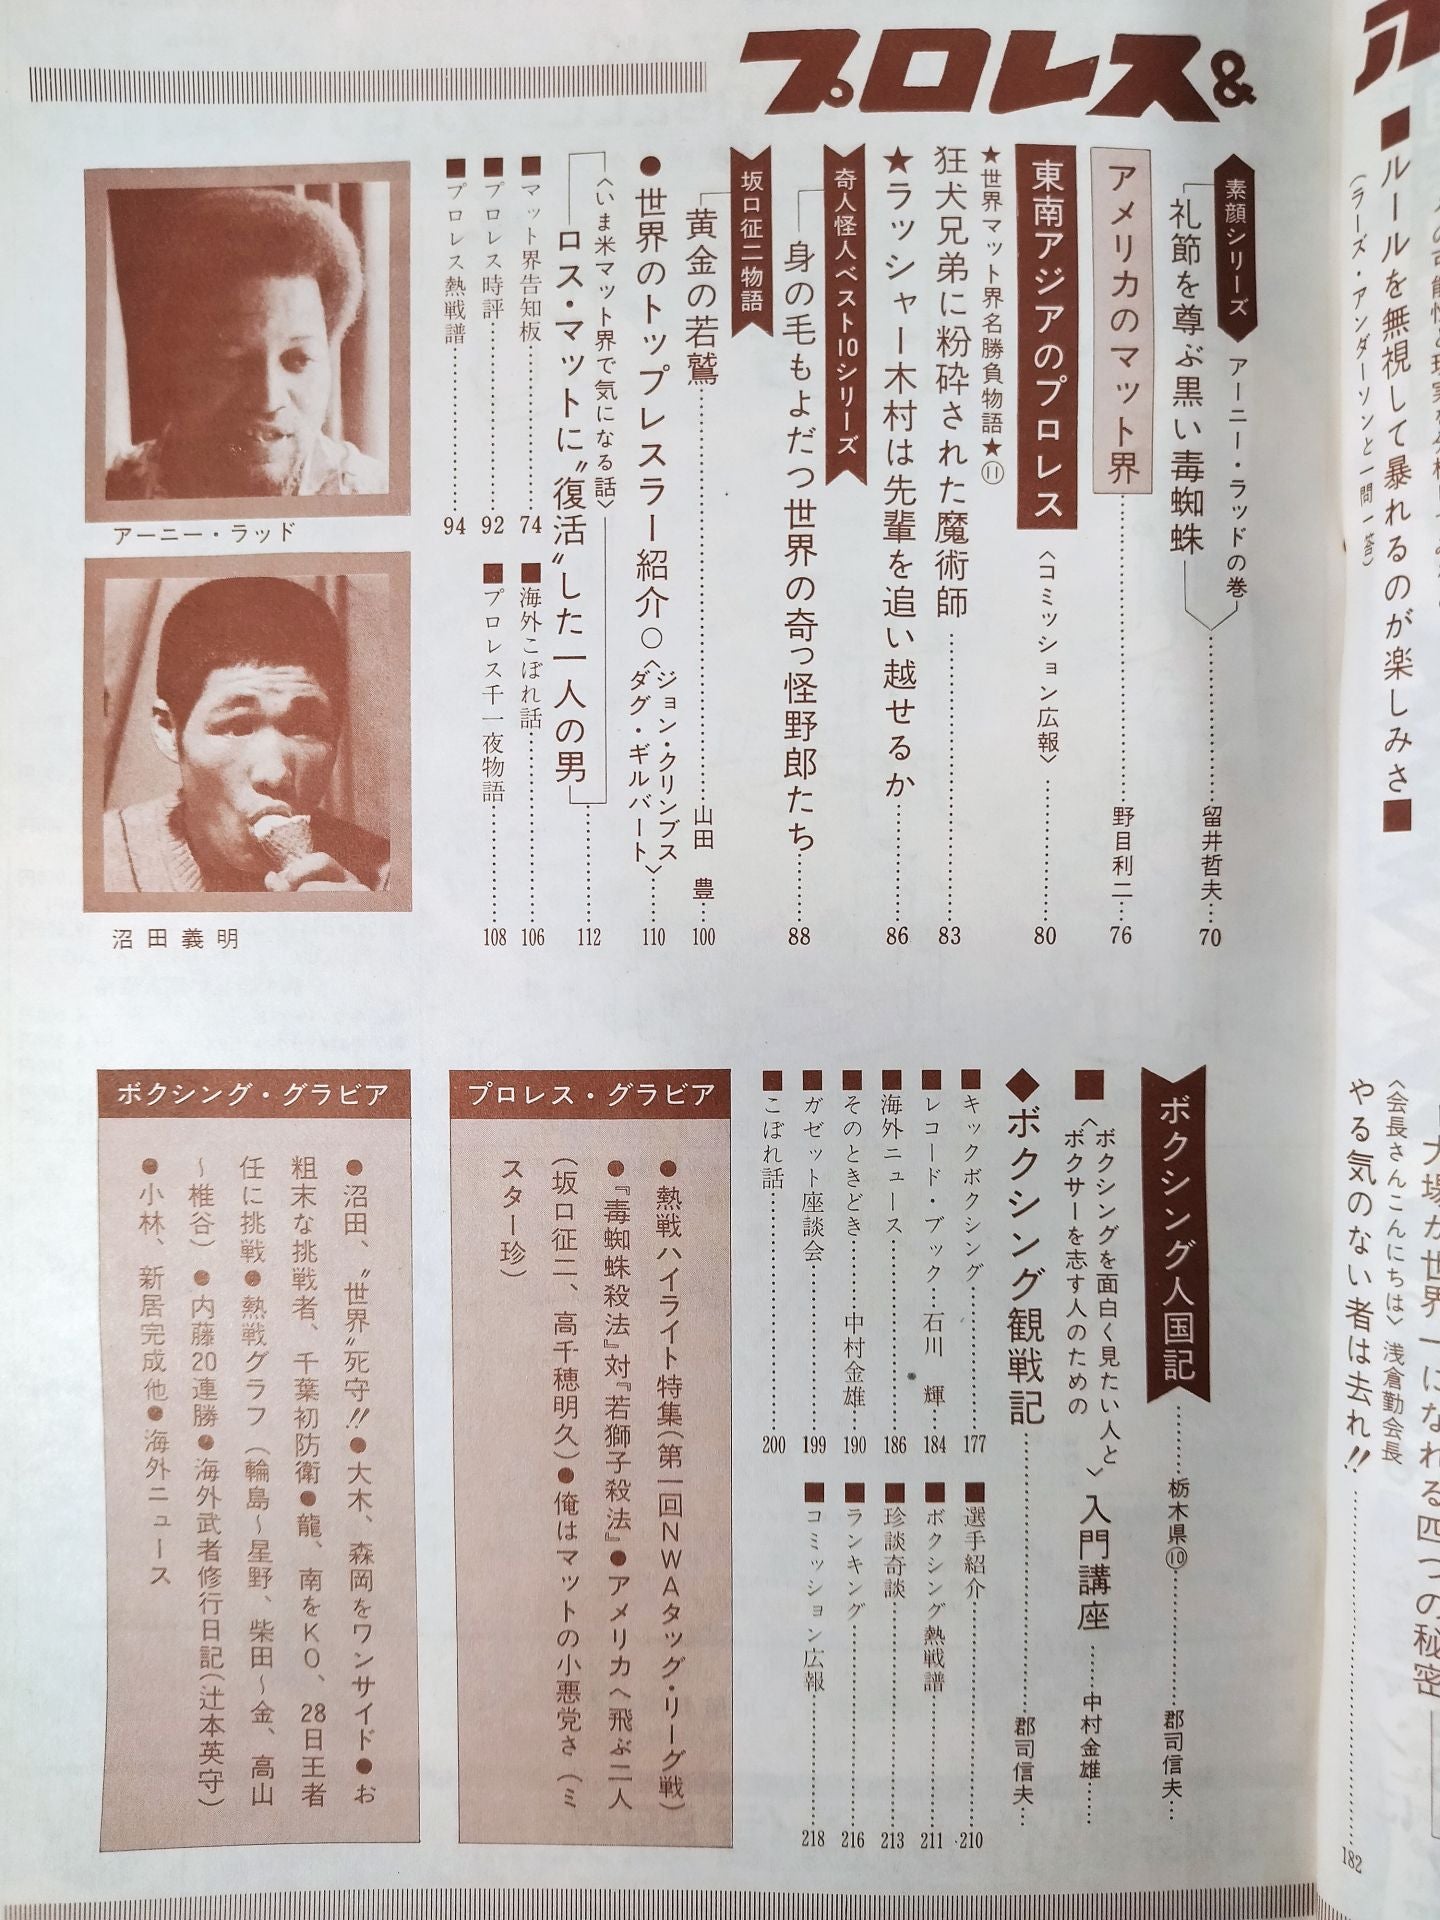 ■ルールを無視して暴れるのが楽しみさ■
(ラーズ・アンダーソンと一問一答)
プロレス&
素顔シリーズ
アーニー・ラッドの巻
礼節を尊ぶ黒い毒蜘蛛
留井哲夫 70
アメリカのマット界
野目利二 76
東南アジアのプロレス
〈コミッション広報〉 80
★世界マット界名勝負物語★⑪
狂犬兄弟に粉砕された魔術師 83
★ラッシャー木村は先輩を追い越せるか 86
奇人怪人ベスト10シリーズ
身の毛もよだつ世界の奇っ怪野郎たち 88
坂口征二物語
黄金の若鷲
山田 豊 100
●世界のトップレスラー紹介○〈ジョン・クリンプス
ダグ・ギルバート〉 110
〈いま米マット界で気になる話〉
ロス・マットに“復活”した一人の男 112
■マット界告知板 74
■海外こぼれ話 106
■プロレス時評 92
■プロレス千一夜物語 108
■プロレス熱戦譜 94
アーニー・ラッド
沼田義明
〈会長さんこんにちは〉浅倉勤会長
やる気のない者は去れ!! 182
ボクシング人国記
栃木県⑩
郡司信夫
■〈ボクシングを面白く見たい人と
ボクサーを志す人のための〉入門講座
中村金雄
◆ボクシング観戦記
郡司信夫
■キックボクシング 177
■選手紹介 210
■レコード・ブック 石川 輝 184
■ボクシング熱戦譜 211
■海外ニュース 186
■珍談奇談 213
■そのときどき 中村金雄 190
■ランキング 216
■ガゼット座談会 199
■コミッション広報 218
■こぼれ話 200
プロレス・グラビア
●熱戦ハイライト特集(第一回NWAタッグ・リーグ戦)
●『毒蜘蛛殺法』対『若獅子殺法』●アメリカへ飛ぶ二人
(坂口征二、高千穂明久)●俺はマットの小悪党さ(ミ
スター珍)
ボクシング・グラビア
●沼田、“世界”死守!!●大木、森岡をワンサイド●お
粗末な挑戦者、千葉初防衛●龍、南をKO、28日王者
任に挑戦●熱戦グラフ(輪島〜星野、柴田〜金、高山
〜椎谷)●内藤20連勝●海外武者修行日記(辻本英守)
●小林、新居完成他●海外ニュース